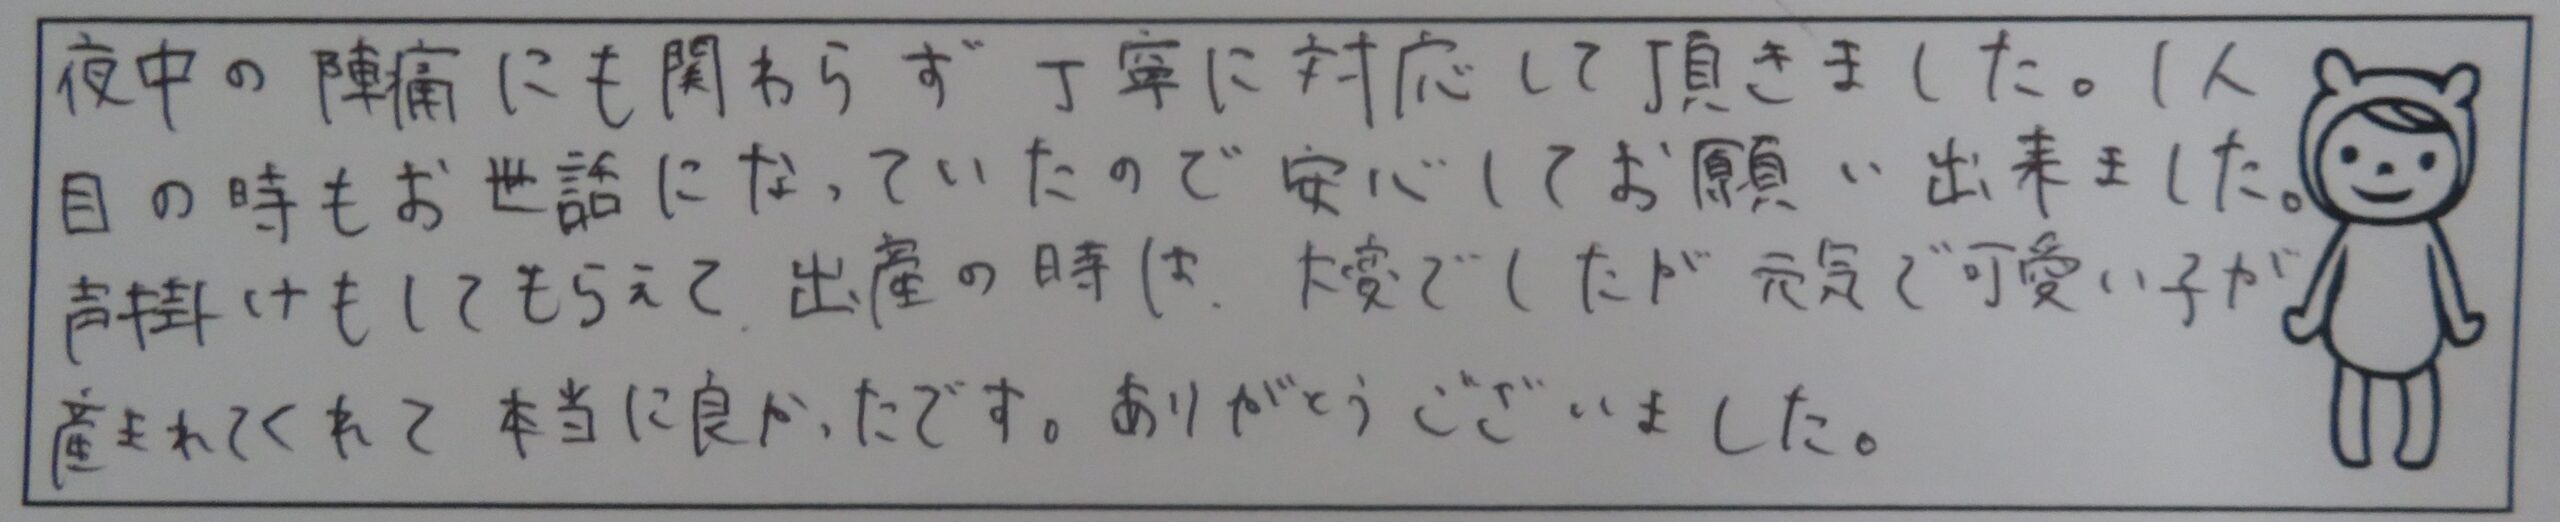 夜中の陣痛にも関わらず丁寧に対応して頂きました。1人
目の時もお世話になっていたので安心してお願い出来ました。
声掛けもしてもらえて、出産の時は、大変でしたが元気で可愛い子が
産まれてくれて本当に良かったです。ありがとうございました。